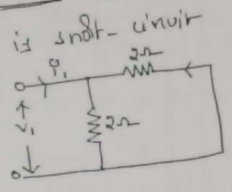 is short-circuit
I₁
2Ω
V₁
2Ω